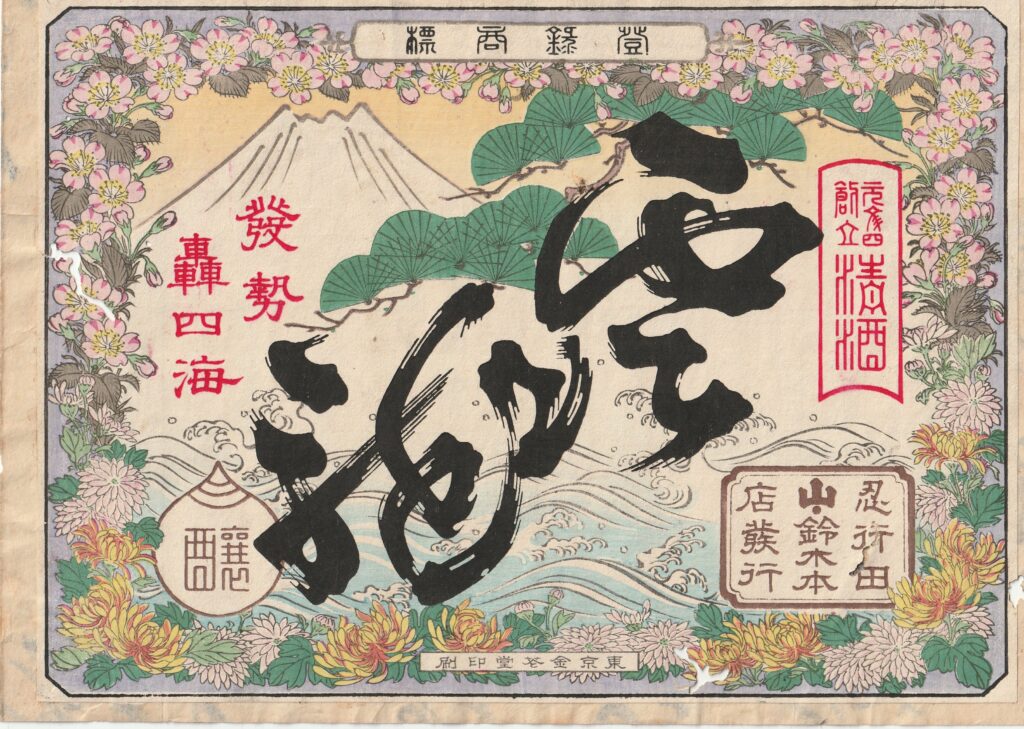 登錄商標
元祿四
創立
清酒
發勢
轟四海
釀
忍行田
鈴木本
店發行
東京金堂印刷